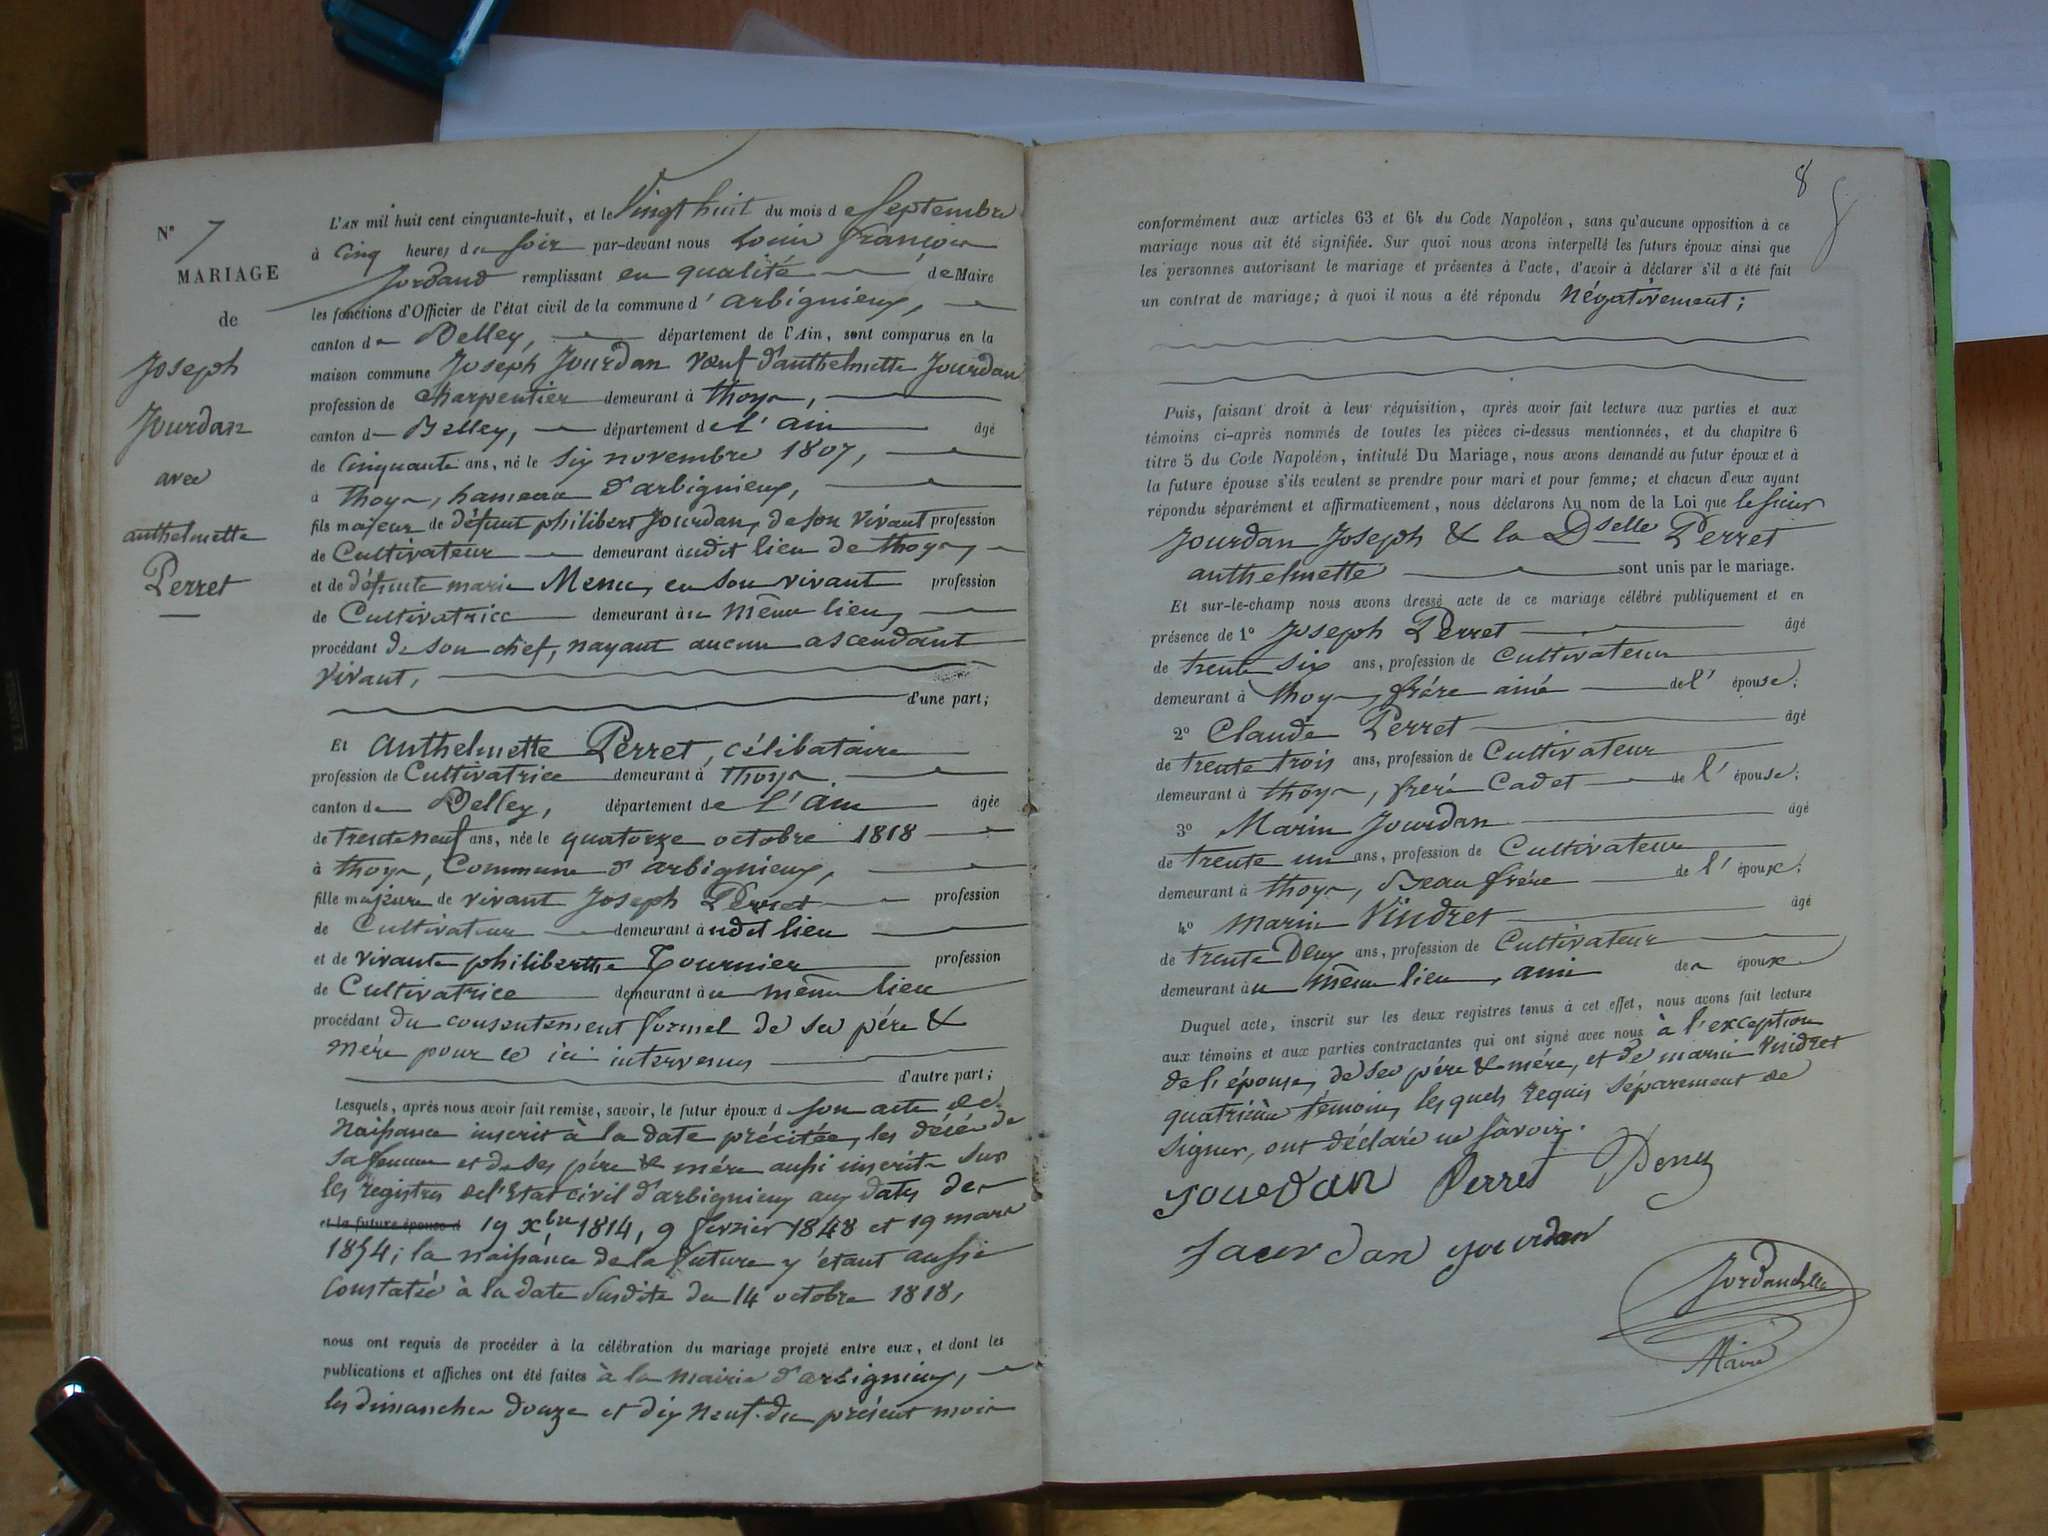 N° 7
MARIAGE
de
Joseph
Jourdan
avec
anthelmette
Perret
L'AN mil huit cent cinquante-huit, et le Vingt huit du mois de Septembre
à Cinq heures du soir par-devant nous Louis François
Jordand remplissant en qualité de Maire
les fonctions d'Officier de l'état civil de la commune d'arbignieux,
canton de Belley, département de l'Ain, sont comparus en la
maison commune Joseph Jourdan veuf d'anthelmette Jourdan
profession de Charpentier demeurant à thoys,
canton de Belley, département de L'ain âgé
de Cinquante ans, né le six novembre 1807,
à thoys, hameau d'arbignieux,
fils majeur de défunt philibert Jourdan, de son vivant profession
de Cultivateur demeurant àudit lieu de thoys,
et de défunte marie Menu, en son vivant profession
de Cultivatrice demeurant àu même lieu,
procédant de son chef, nayant aucun ascendant
vivant,
d'une part;
Et anthelmette Perret, célibataire
profession de Cultivatrice demeurant à thoys
canton de Belley, département de L'ain âgée
de trente neuf ans, née le quatorze octobre 1818
à thoys, Commune d'arbignieux,
fille majeure de vivant Joseph Perret profession
de Cultivateur demeurant àudit lieu
et de vivante philiberthe Tournier profession
de Cultivatrice demeurant àu même lieu
procédant du consentement formel de ses père &
mère pour ce ici intervenus
d'autre part;
Lesquels, après nous avoir fait remise, savoir, le futur époux d son acte de
Naissance inscrit à la date précitée, les décés de
sa femme et de ses père & mère aussi inscrits sur
les registres de l'Etat civil d'arbignieux aux dates des
et la future épouse d 19 xbre 1814, 9 février 1848 et 19 mars
1854; la naissance de la future y étant aussi
constatée à la date susdite du 14 octobre 1818,
nous ont requis de procéder à la célébration du mariage projeté entre eux, et dont les
publications et affiches ont été faites à la mairie d'arbignieux,
les dimanches douze et dix neuf du présent mois
8
conformément aux articles 63 et 64 du Code Napoléon, sans qu'aucune opposition à ce
mariage nous ait été signifiée. Sur quoi nous avons interpellé les futurs époux ainsi que
les personnes autorisant le mariage et présentes à l'acte, d'avoir à déclarer s'il a été fait
un contrat de mariage; à quoi il nous a été répondu Négativement;
Puis, faisant droit à leur réquisition, après avoir fait lecture aux parties et aux
témoins ci-après nommés de toutes les pièces ci-dessus mentionnées, et du chapitre 6
titre 5 du Code Napoléon, intitulé Du Mariage, nous avons demandé au futur époux et à
la future épouse s'ils veulent se prendre pour mari et pour femme; et chacun d'eux ayant
répondu séparément et affirmativement, nous déclarons Au nom de la Loi que le sieur
Jourdan Joseph & la Dselle Perret
anthelmette sont unis par le mariage.
Et sur-le-champ nous avons dressé acte de ce mariage célébré publiquement et en
présence de 1° Joseph Perret âgé
de trente six ans, profession de Cultivateur
demeurant à thoys, frére ainé de l' épouse;
2° Claude Perret âgé
de trente trois ans, profession de Cultivateur
demeurant à thoys, frére Cadet de l' épouse;
3° Marin Jourdan âgé
de trente un ans, profession de Cultivateur
demeurant à thoys, Beau frére de l' époux;
4° Marin Vindret âgé
de trente Deux ans, profession de Cultivateur
demeurant àu même lieu, ami des époux
Duquel acte, inscrit sur les deux registres tenus à cet effet, nous avons fait lecture
aux témoins et aux parties contractantes qui ont signé avec nous à l'exception
de l'épouse, de ses père & mère, et de marin Vindret
quatrième témoin, lesquels requis séparement de
signer, ont déclaré ne savoir.
Jourdan Perret Perret
Jourdan Jourdan
Maire